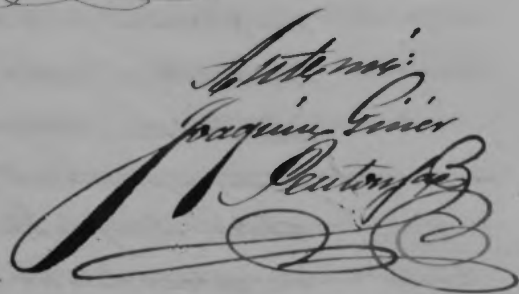 Ante mi:
Joaquin Giner